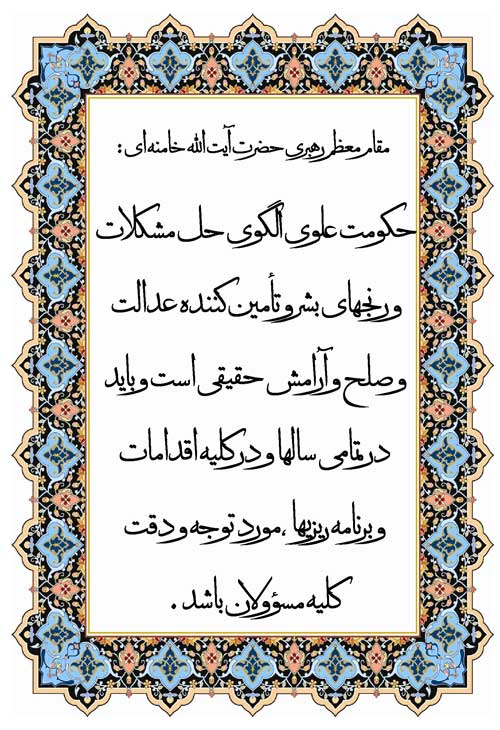 مقام معظم رهبری حضرت آیت الله خامنه ای :
حکومت علوی الگوی حل مشکلات
و رنجهای بشر و تأمین کننده عدالت
و صلح و آرامش حقیقی است و باید
در تمامی سالها و در کلیه اقدامات
و برنامه ریزیها ، مورد توجه و دقت
کلیه مسؤولان باشد .